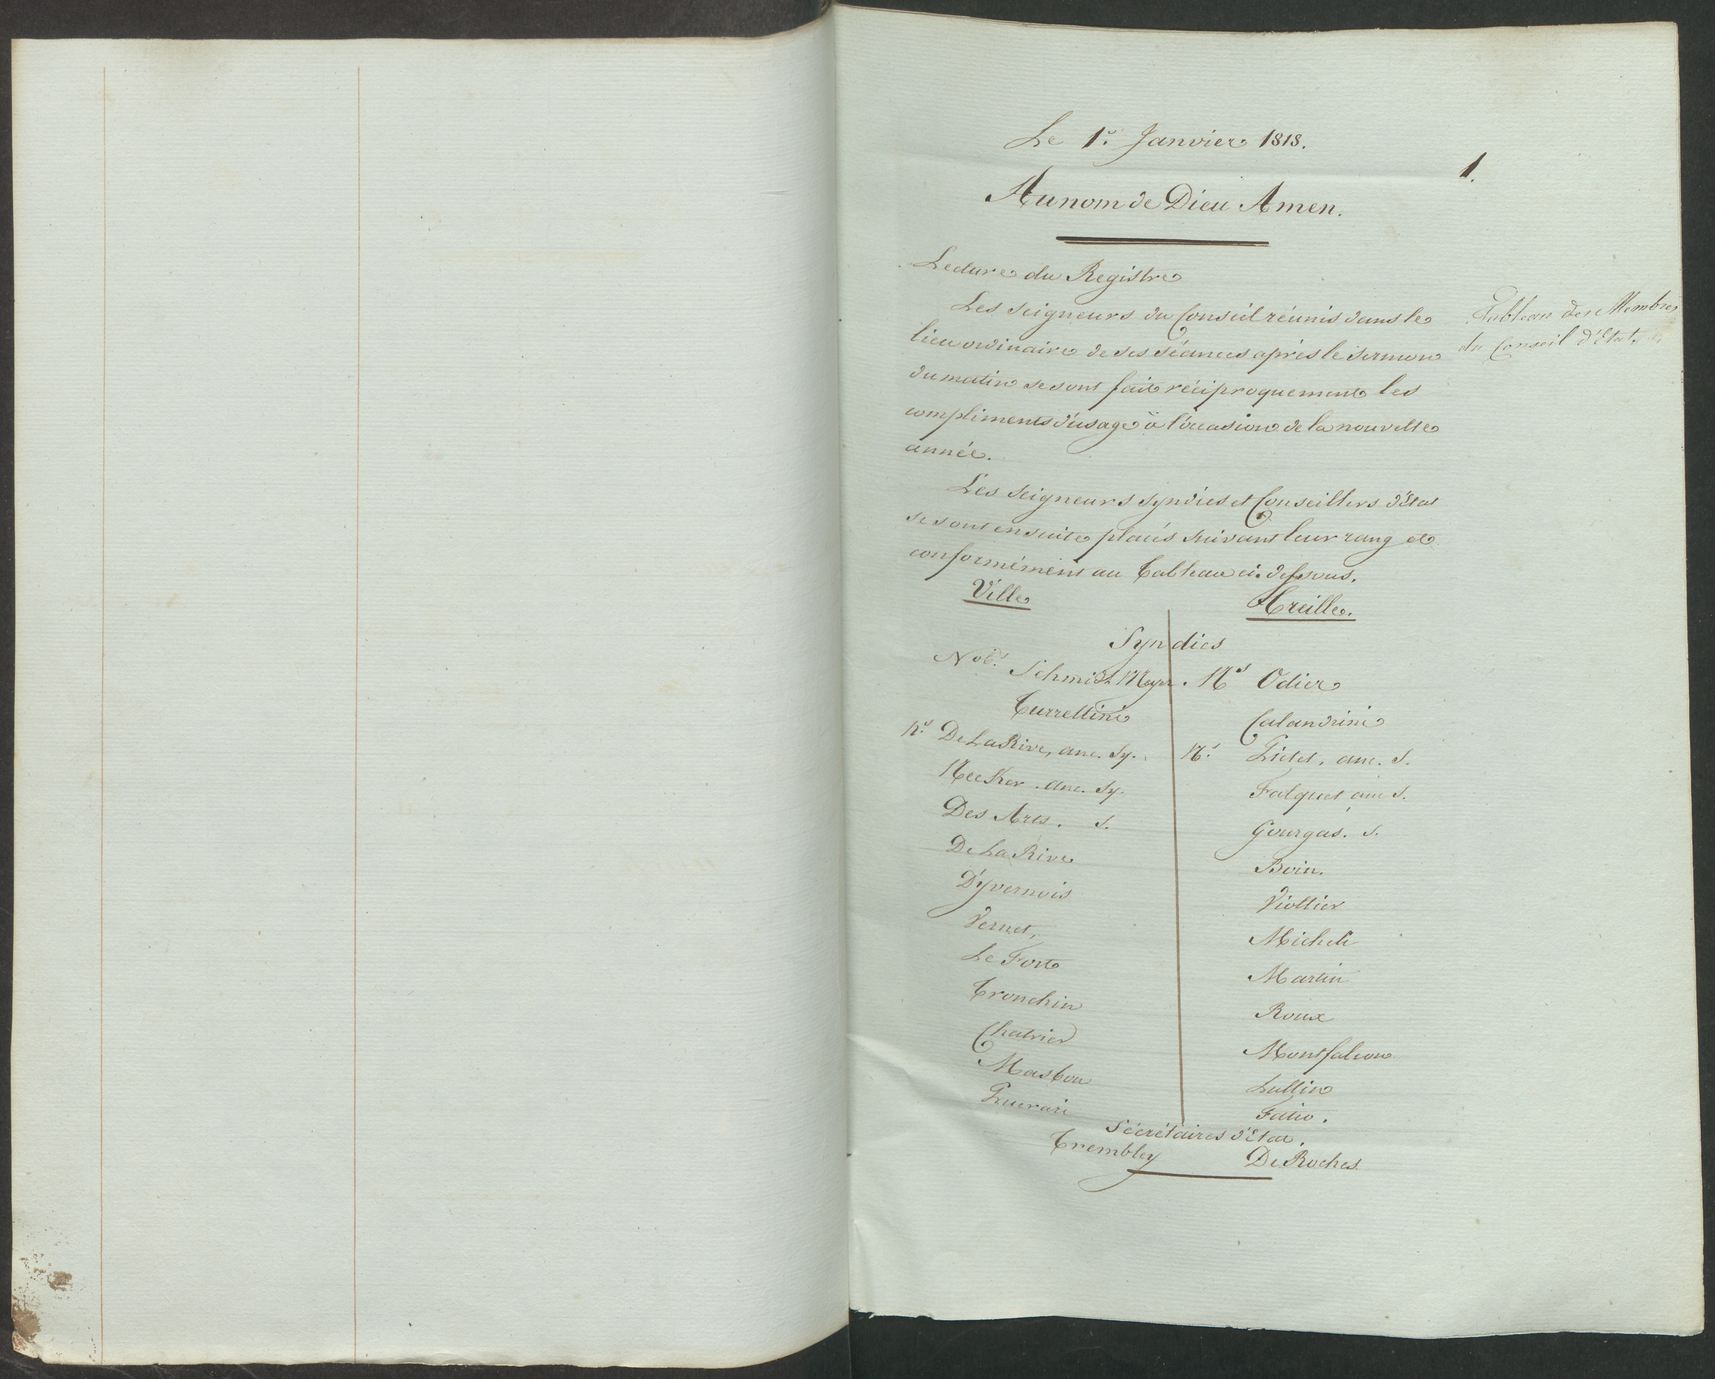 Le 1.r Janvier 1818.
1.
Au nom de Dieu Amen.
Lecture du Registre
Les seigneurs du Conseil réunis dans le
lieu ordinaire de ses séances après le sermon
du matin se sont fait réciproquement les
compliments d'usage à l'occasion de la nouvelle
année.
Tableau des Membres
du Conseil d'Etat
Les seigneurs syndics et Conseillers d'État
se sont ensuite placés suivant leur rang et
conformément au Tableau ci-dessous.
Ville Treille.
Syndics
Nob. Schmidtmeyer. N.s Odier
Turrettini Calandrini
N.s De La Rive, anc. sy. N.s Pictet, anc. s.
Necker. anc. sy. Falquet anc. s.
Des Arts. s. Gourgas. s.
De La Rive Boin.
D'yvernois Viollier
Vernet, Micheli
Le Fort Martin
Tronchin Roux
Chatrier Montfalcon
Masbou Lullin
Puerari Fatio.
Sécrétaires d'Etat.
Trembley De Roches